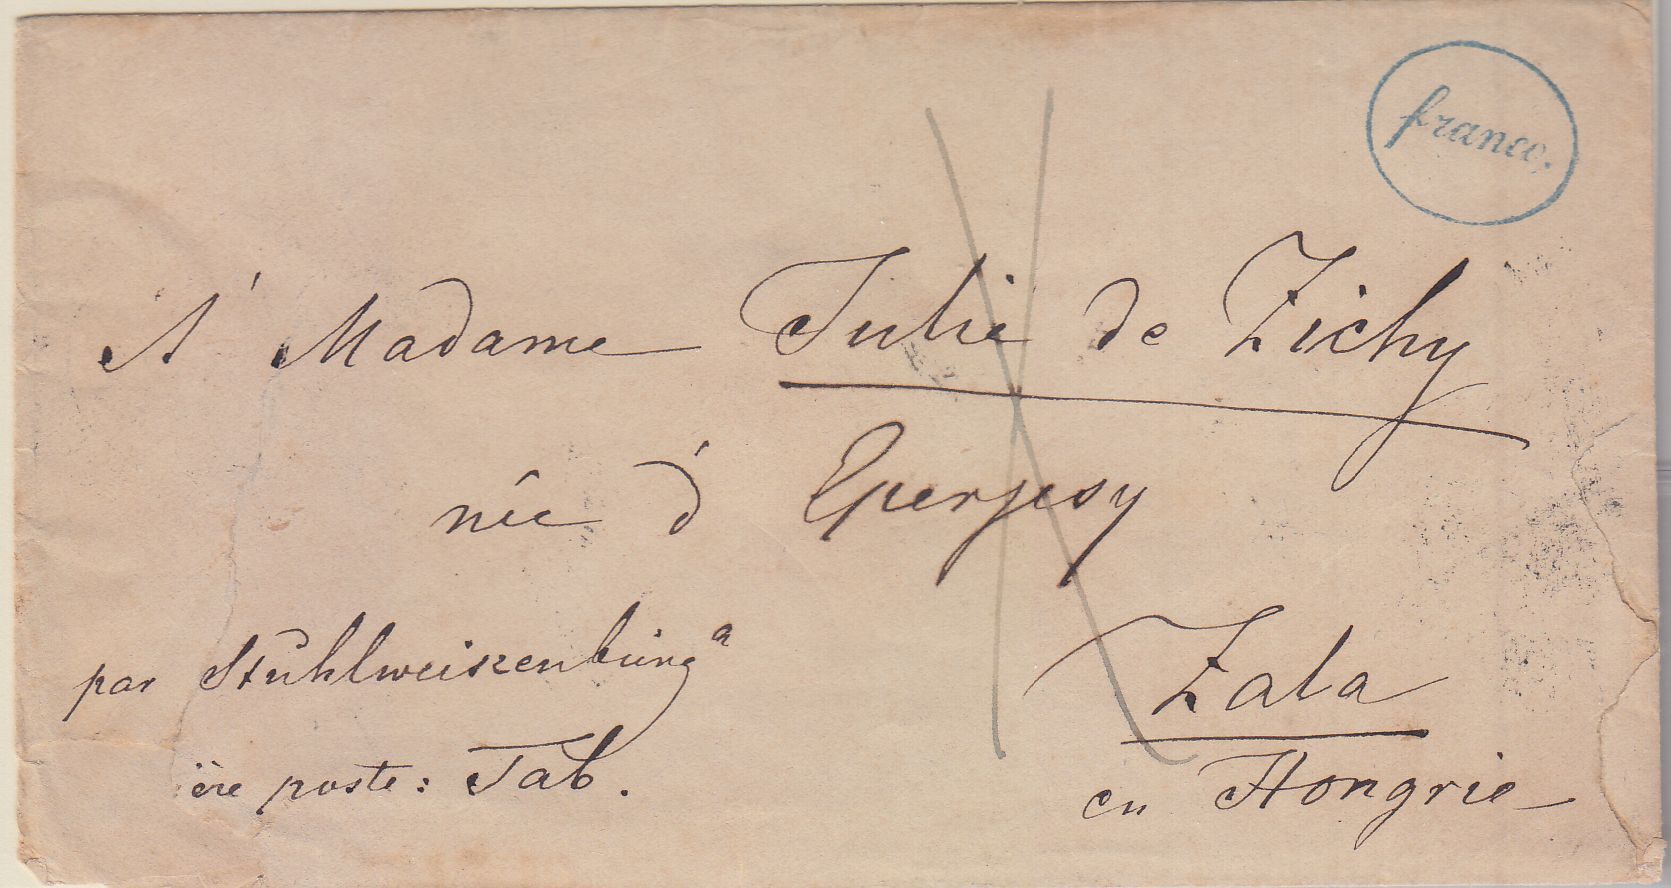 franco.
A' Madame Julie de Zichy
née d' Eperjesy
par Stuhlweiszenburg a
Zala
ère poste: Tab.
en Hongrie